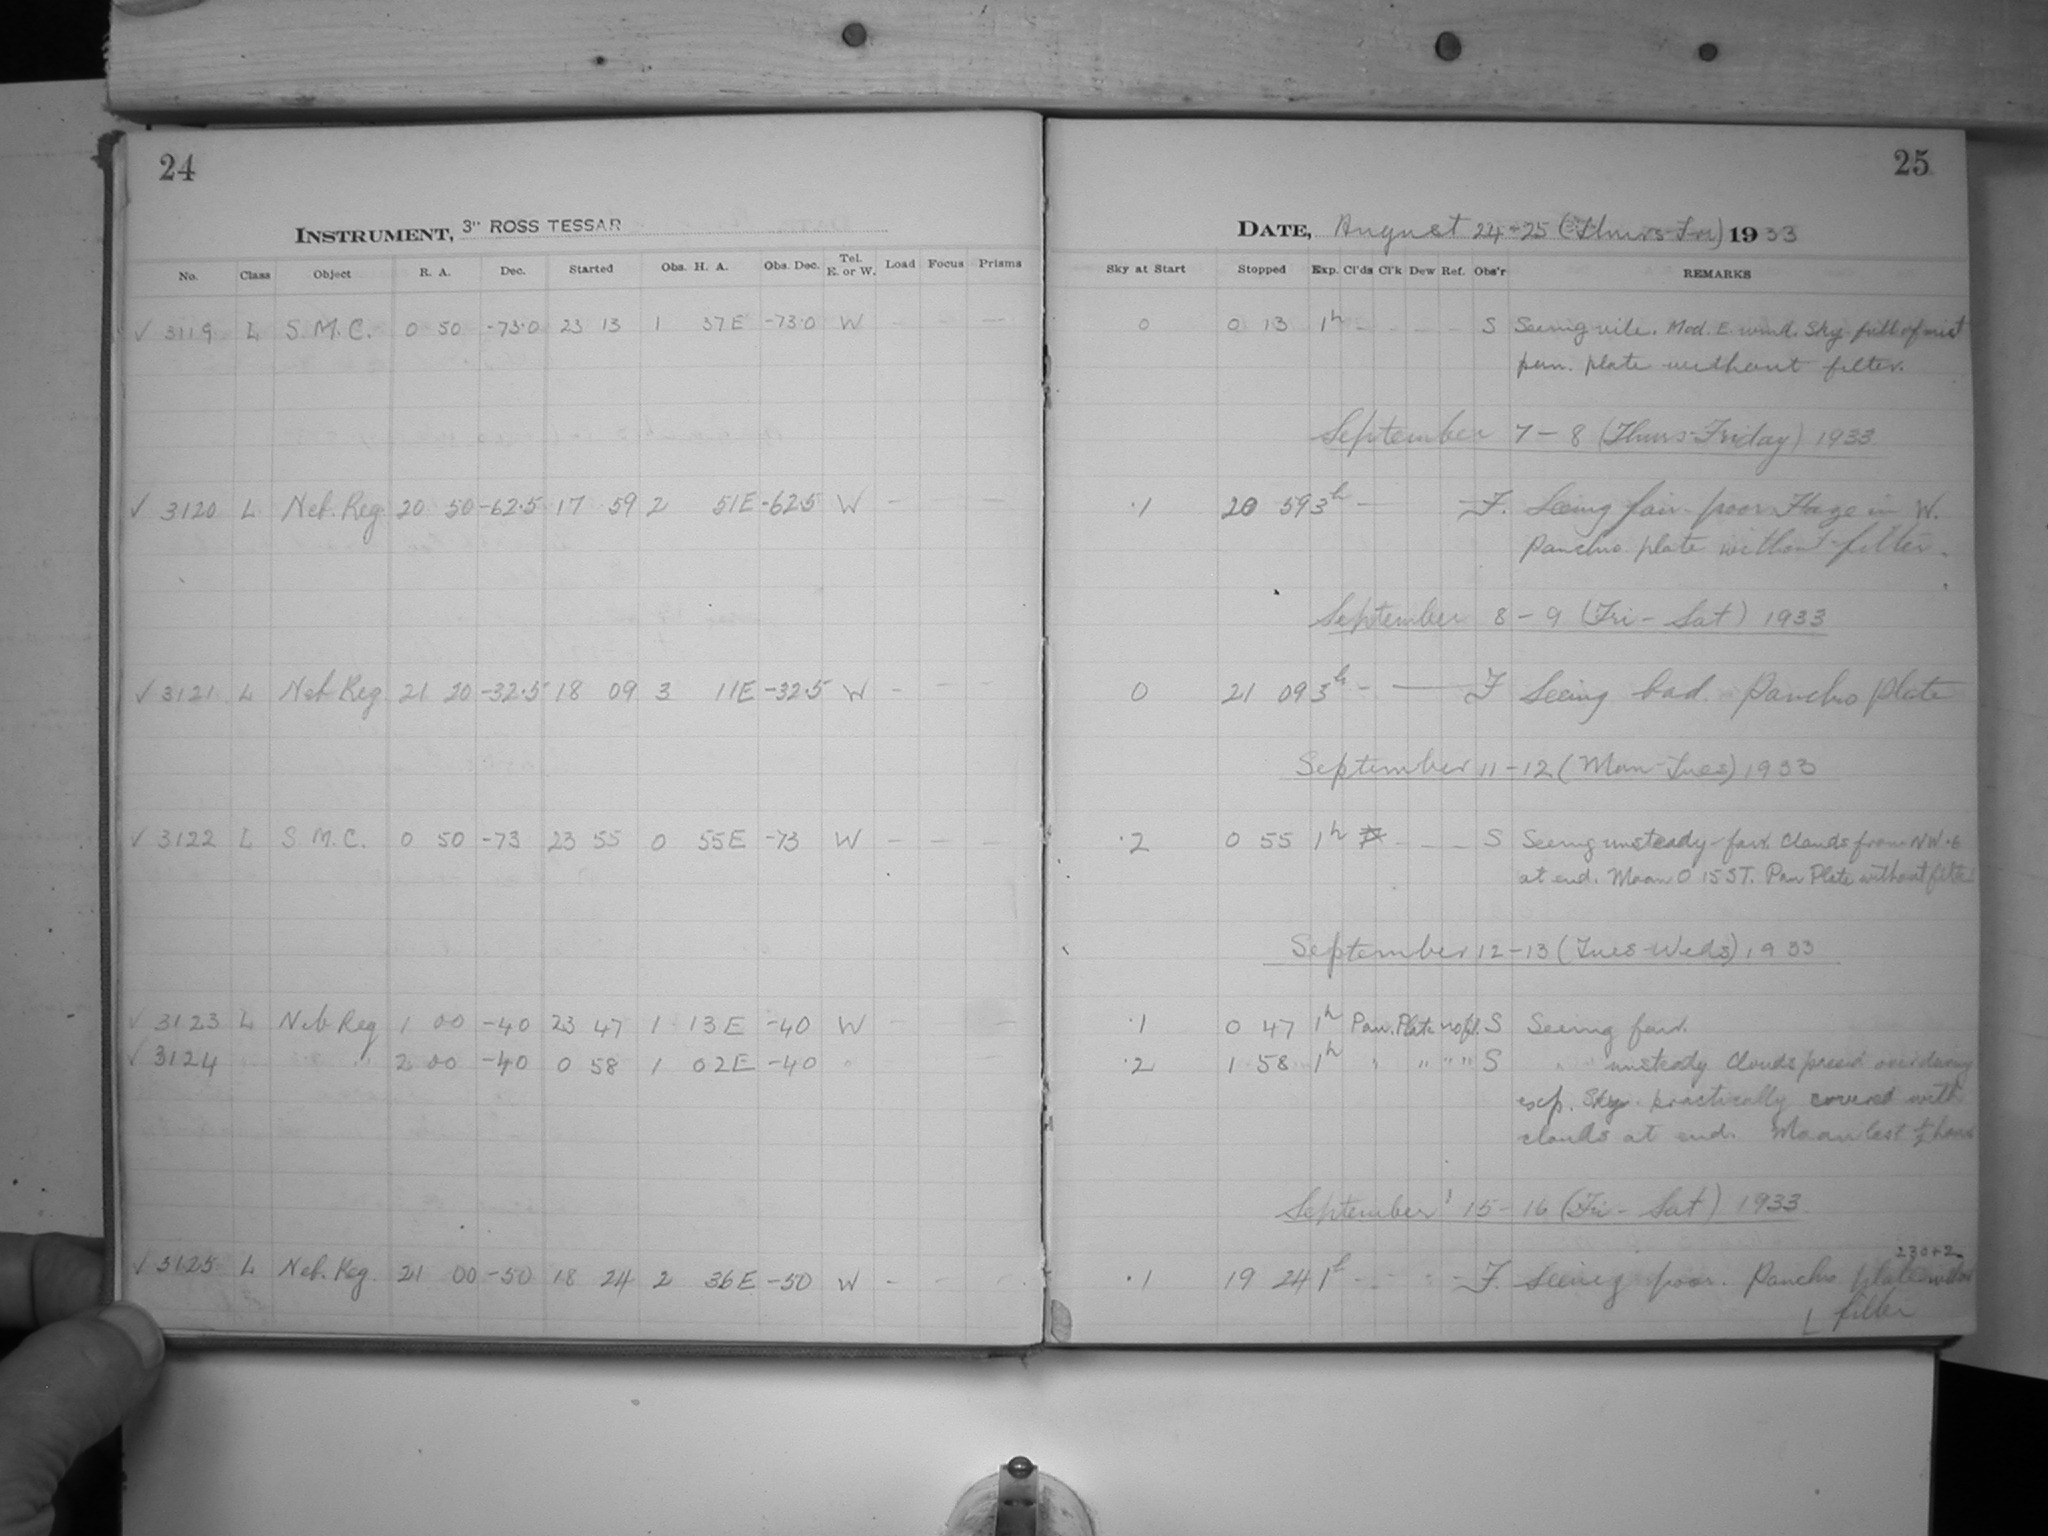 24
INSTRUMENT, 3" ROSS TESSAR
No. Class Object R. A. Dec. Started Obs. H. A. Obs. Dec. Tel. E. or W. Load Focus Prisms
✓ 3119 L S.M.C. 0 50 -73.0 23 13 1 37E -73.0 W - - -
✓ 3120 L Neb. Reg. 20 50 -62.5 17 59 2 51E -62.5 W - - -
✓ 3121 L Neb Reg 21 20 -32.5 18 09 3 11E -32.5 W - - -
✓ 3122 L S.M.C. 0 50 -73 23 55 0 55E -73 W - - -
✓ 3123 L Neb Reg 1 00 -40 23 47 1 13E -40 W - -
✓ 3124 " " 2 00 -40 0 58 1 02E -40 " -
✓ 3125 L Neb. Reg. 21 00 -50 18 24 2 36E -50 W - - -
25
DATE, August 24-25 (Thurs-Fri) 1933
Sky at Start Stopped Exp. Cl'ds Cl'k Dew Ref. Obs'r REMARKS
0 0 13 1h - - - - S Seeing vile. Mod. E wind. Sky full of mist
pan. plate without filter.
September 7-8 (Thurs-Friday) 1933
.1 20 59 3h - F. Seeing fair-poor Haze in W.
Panchro plate without filter.
September 8-9 (Fri-Sat) 1933
0 21 09 3h - — F Seeing bad. Panchro plate
September 11-12 (Mon-Tues) 1933
.2 0 55 1h - - - S Seeing unsteady-fair. Clouds from NW.
at end. Moon 0 15 ST. Pan Plate without filter
September 12-13 (Tues-Weds) 1933
.1 0 47 1h Pan. Plate no fil. S Seeing fair.
.2 1 58 1h " " " " S " unsteady Clouds passed over during
exp. Sky practically covered with
clouds at end. Moon last ½ hour
September 15-16 (Fri-Sat) 1933
.1 19 24 1h - - - - F. Seeing poor. Panchro plate without
filter